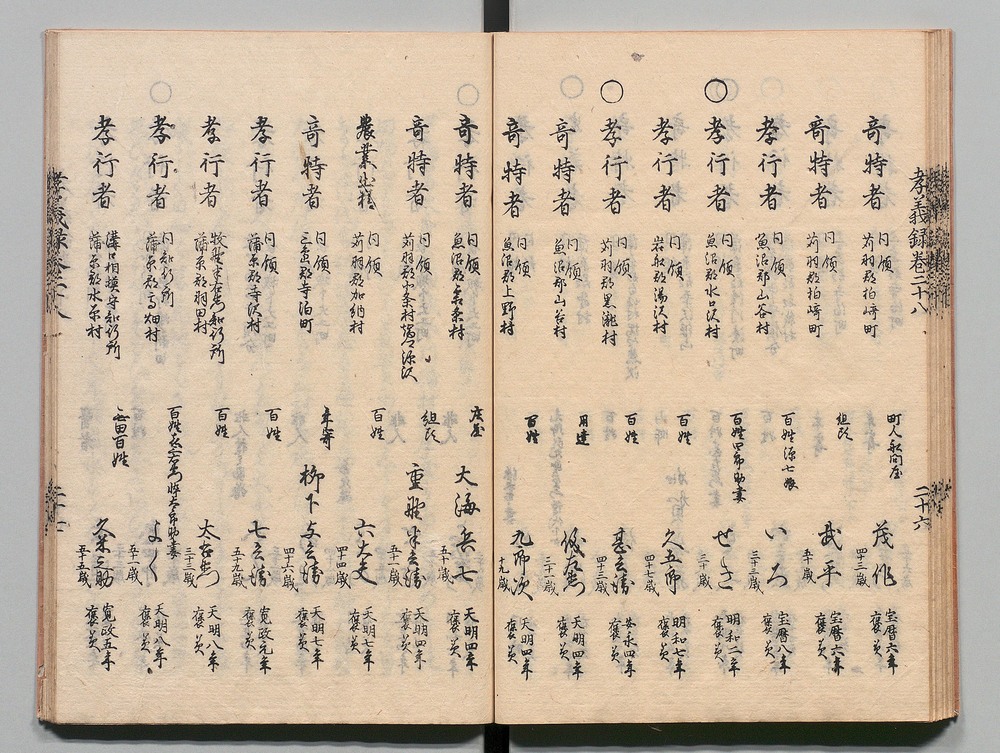 孝義録卷二十八
二十六
奇特者 同領 苅羽郡柏崎町 町人船問屋 茂作 四十三歳 宝暦六年 褒美
奇特者 同領 苅羽郡柏崎町 組頭 武平 五十歳 宝暦六年 褒美
孝行者 同領 魚沼郡山谷村 百姓源七娘 いろ 三十三歳 宝暦八年 褒美
○ 孝行者 同領 魚沼郡水口沢村 百姓四郎助妻 せき 三十歳 明和二年 褒美
孝行者 同領 岩船郡湯沢村 百姓 久五郎 四十七歳 明和七年 褒美
○ 孝行者 同領 苅羽郡黒瀧村 百姓 甚之清 四十三歳 安永四年 褒美
○ 奇特者 同領 魚沼郡山谷村 用達 三十一歳 天明四年 褒美
奇特者 同領 魚沼郡上野村 百姓 九郎次 十九歳 天明四年 褒美
○ 奇特者 同領 魚沼郡 村 庄屋 大海兵七 五十歳 天明四年 褒美
奇特者 同領 苅羽郡 条村 組頭 重野 五十歳 天明四年 褒美
農業出精 同領 苅羽郡加納村 百姓 六大夫 四十四歳 天明七年 褒美
奇特者 同領 三島郡寺泊町 年寄 柳下 四十六歳 天明七年 褒美
孝行者 同領 蒲原郡寺沢村 百姓 五十九歳 寛政元年 褒美
孝行者 知行所 蒲原郡羽田村 百姓 太右衛門 三十三歳 天明八年 褒美
○ 孝行者 同知行所 蒲原郡 畑村 百姓 妻 よし 五十一歳 天明八年 褒美
孝行者 溝口相摸守知行所 蒲原郡水原村 無田百姓 久米之助 五十五歳 寛政五年 褒美
孝義録卷二十八
二十七